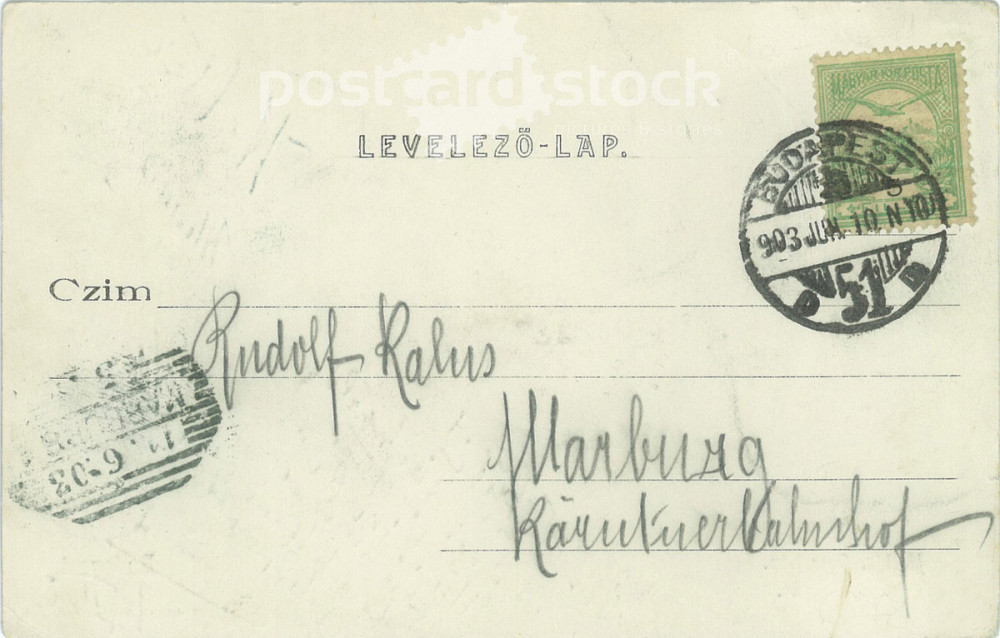 postcard stock
MAGYAR KIR. POSTA
LEVELEZŐ-LAP.
BUDAPEST
903 JUN. 10. N 10
51
Czim
Rudolf Kalus
Marburg
Kärntnerbahnhof
MARBURG
6 03